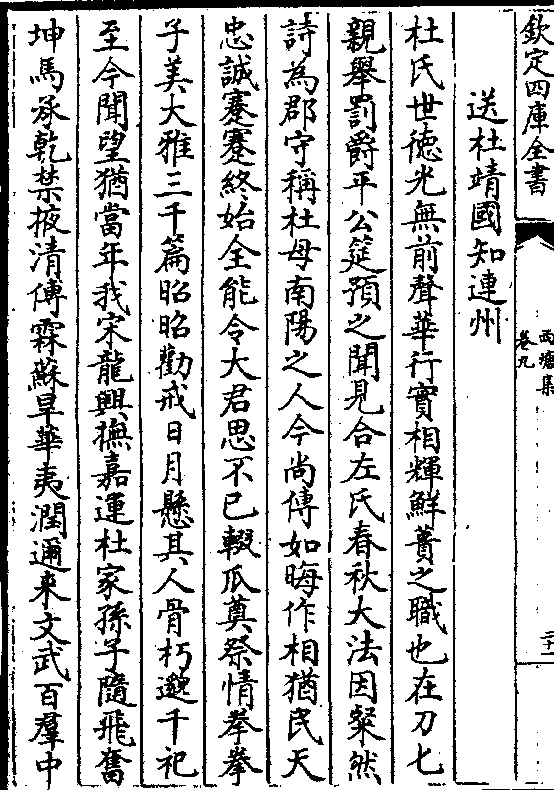 欽定四庫全書
西塘集
卷九
二十
送杜靖國知連州
杜氏世徳光無前聲華行實相輝鮮蕢之職也在刀匕
親舉罰爵平公筵預之聞見合左氏春秋大法因粲然
詩為郡守稱杜母南陽之人今尚傳如晦作相猶民天
忠誠蹇蹇終始全能令大君思不已輟瓜奠祭情拳拳
子美大雅三千篇昭昭勸戒日月懸其人骨朽邈千祀
至今聞望猶當年我宋龍興撫嘉運杜家孫子隨飛奮
坤馬承乾禁掖清傅霖蘇旱華夷潤邇来文武百羣中